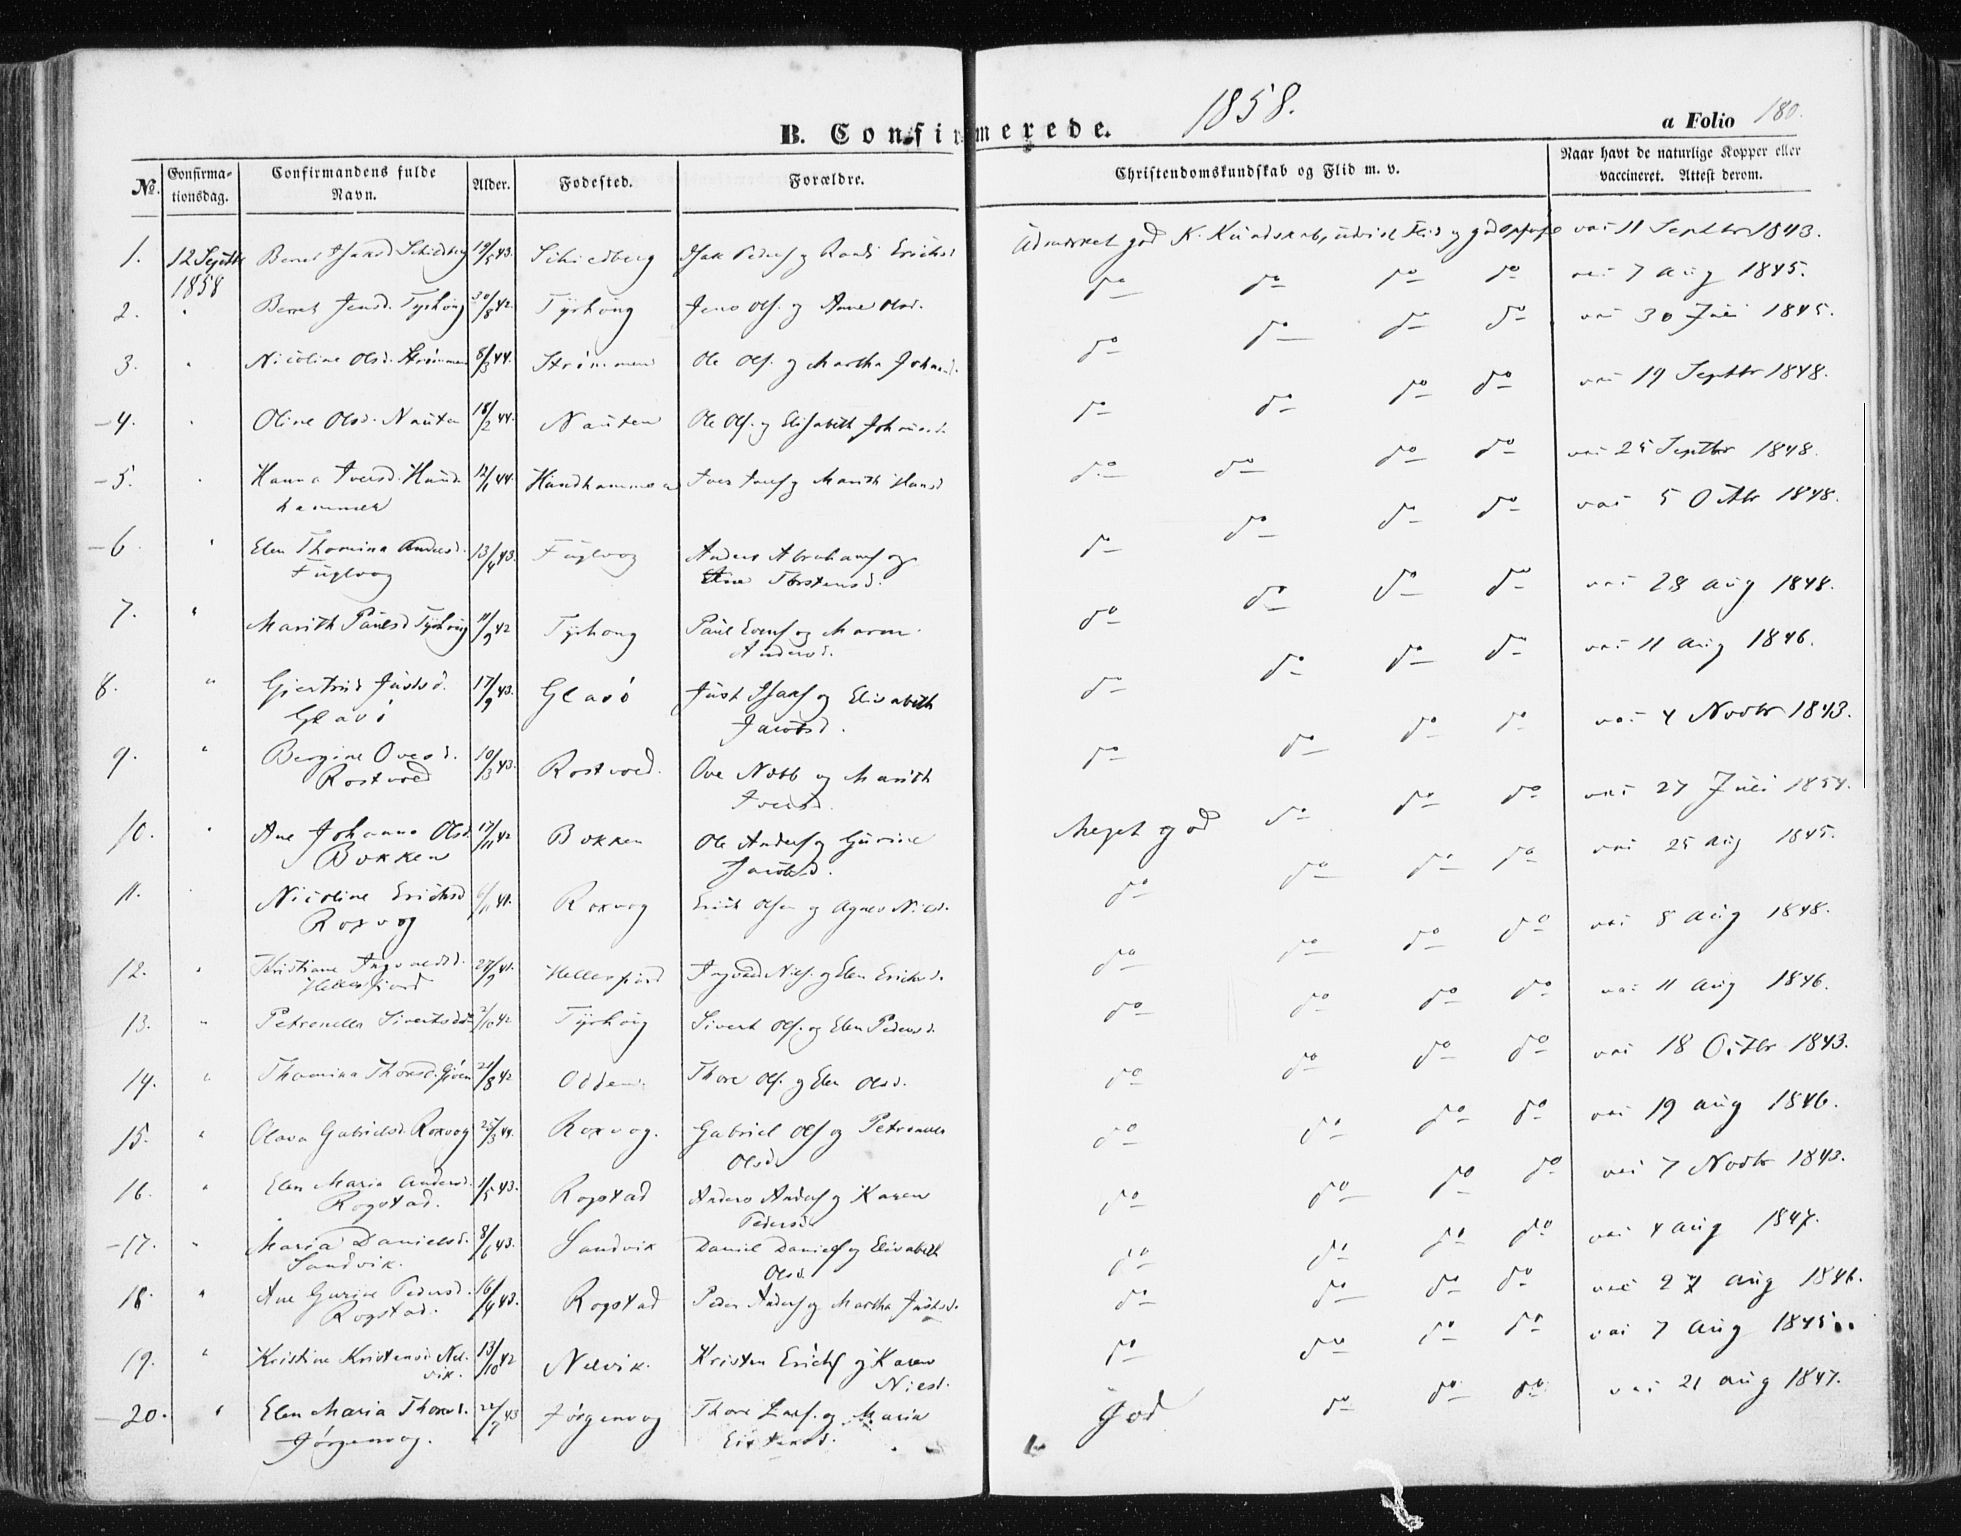 1858.
B. Confirmerede.
a Folio 180.
No. Confirmationsdag. Confirmandens fulde Navn. Alder. Fødested. Forældre. Christendomskundskab og Flid m. v. Naar havt de naturlige Kopper eller vaccineret. Attest derom.
1. 12 Septbr 1858 Beret Isaksd. Schiedberg 19/5 43. Schiedberg Isak Peders og Randi Erichsd Udmærket god K. Kundskab, udvist Flid og god vac 11 Septbr 1843.
2. " Berret Jensd. Tyrhoug 30/8 42. Tyrhoug Jens Ols. og Ane Olsd. do do do do vac 7 Aug 1845.
3. " Nicoline Olsd. Strømmen 8/3 44. Strømmen Ole Ols. og Martha Johansd. do do do do vac 30 Juli 1845.
4. " Oline Olsd. Nauten 18/2 44. Nauten Ole Ols. og Elisabeth do do do do vac 19 Septbr 1848.
5. " Hanna Iversd. Hundhammer 12/1 44. Hundhammer Iver og Marith Hansd do do do do vac 25 Septbr 1848.
6. " Elen Thomina Andersd. Fuglvog 13/4 43. Fuglvog Anders Abrahams og Ane Torstensd. do do do do vac 5 Octbr 1848.
7. " Marith Paulsd Tyrhoug 11/9 42 Tyrhoug Paul Evens og Maren Andersd. do do do do vac 28 Aug 1848.
8. " Gjertrud Justsd. Glasø 17/9 43. Glasø Just Isaks og Elisabeth Jacobsd. do do do do vac 11 Aug 1846.
9. " Bergine Ovesd. Rostvoed 10/3 43. Rostvoed. Ove Nobb og Marith Iversd. do do do do vac 4 Novbr 1843.
10. " Ane Johanna Olsd. Bokken 17/11 42 Bokken Ole Anders og Gurine Jacobsd. Meget god do do do vac 27 Juli 1854.
11. " Nicoline Erichsd Roxvog 6/11 41. Roxvog Erich Olsen og Agnes Nielsd. do do do do vac 25 Aug 1845.
12. " Kristiane Ingvaldsd. Hellesfjord 27/9 41. Hellesfjord Ingvald Niels. og Elen Erichsd. do do do do vac 8 Aug 1848.
13. " Petronella Sivertsd 2/10 42 Tyrhoug Sivert Ols. og Elen Pedersd. do do do do vac 11 Aug 1846.
14. " Thomina Thoresd. 21/8 42 Odden. Thore Ols. og Elen Olsd. do do do do vac 18 Octbr 1843.
15. " Olava Gabrielsd. Roxvog 25/3 44. Roxvog. Gabriel Ols og Petronell Olsd. do do do do vac 19 Aug 1846.
16. " Elen Maria Andersd. Rogstad. 1/5 43. Rogstad Anders Anders og Karen Pedersd do do do do vac 7 Novbr 1843.
17. " Maria Danielsd. Sandvik. 8/6 43. Sandvik Daniel Daniels og Elisabeth Olsd. do do do do vac 4 Aug 1847.
18. " Ane Gurine Pedersd. Rogstad. 16/4 43. Rogstad Peder Anders og Martha Justsd. do do do do vac 27 Aug 1846.
19. " Kristine Kristensd. Nelvik. 13/10 42 Nelvik. Kristen Erichs og Karen Nielsd. do do do do vac 7 Aug 1845.
20. " Elen Maria Thoresd. Jørgenvog. 22/7 43 Jørgenvog Thore Lars. og Maria god do do do vac 21 Aug 1847.